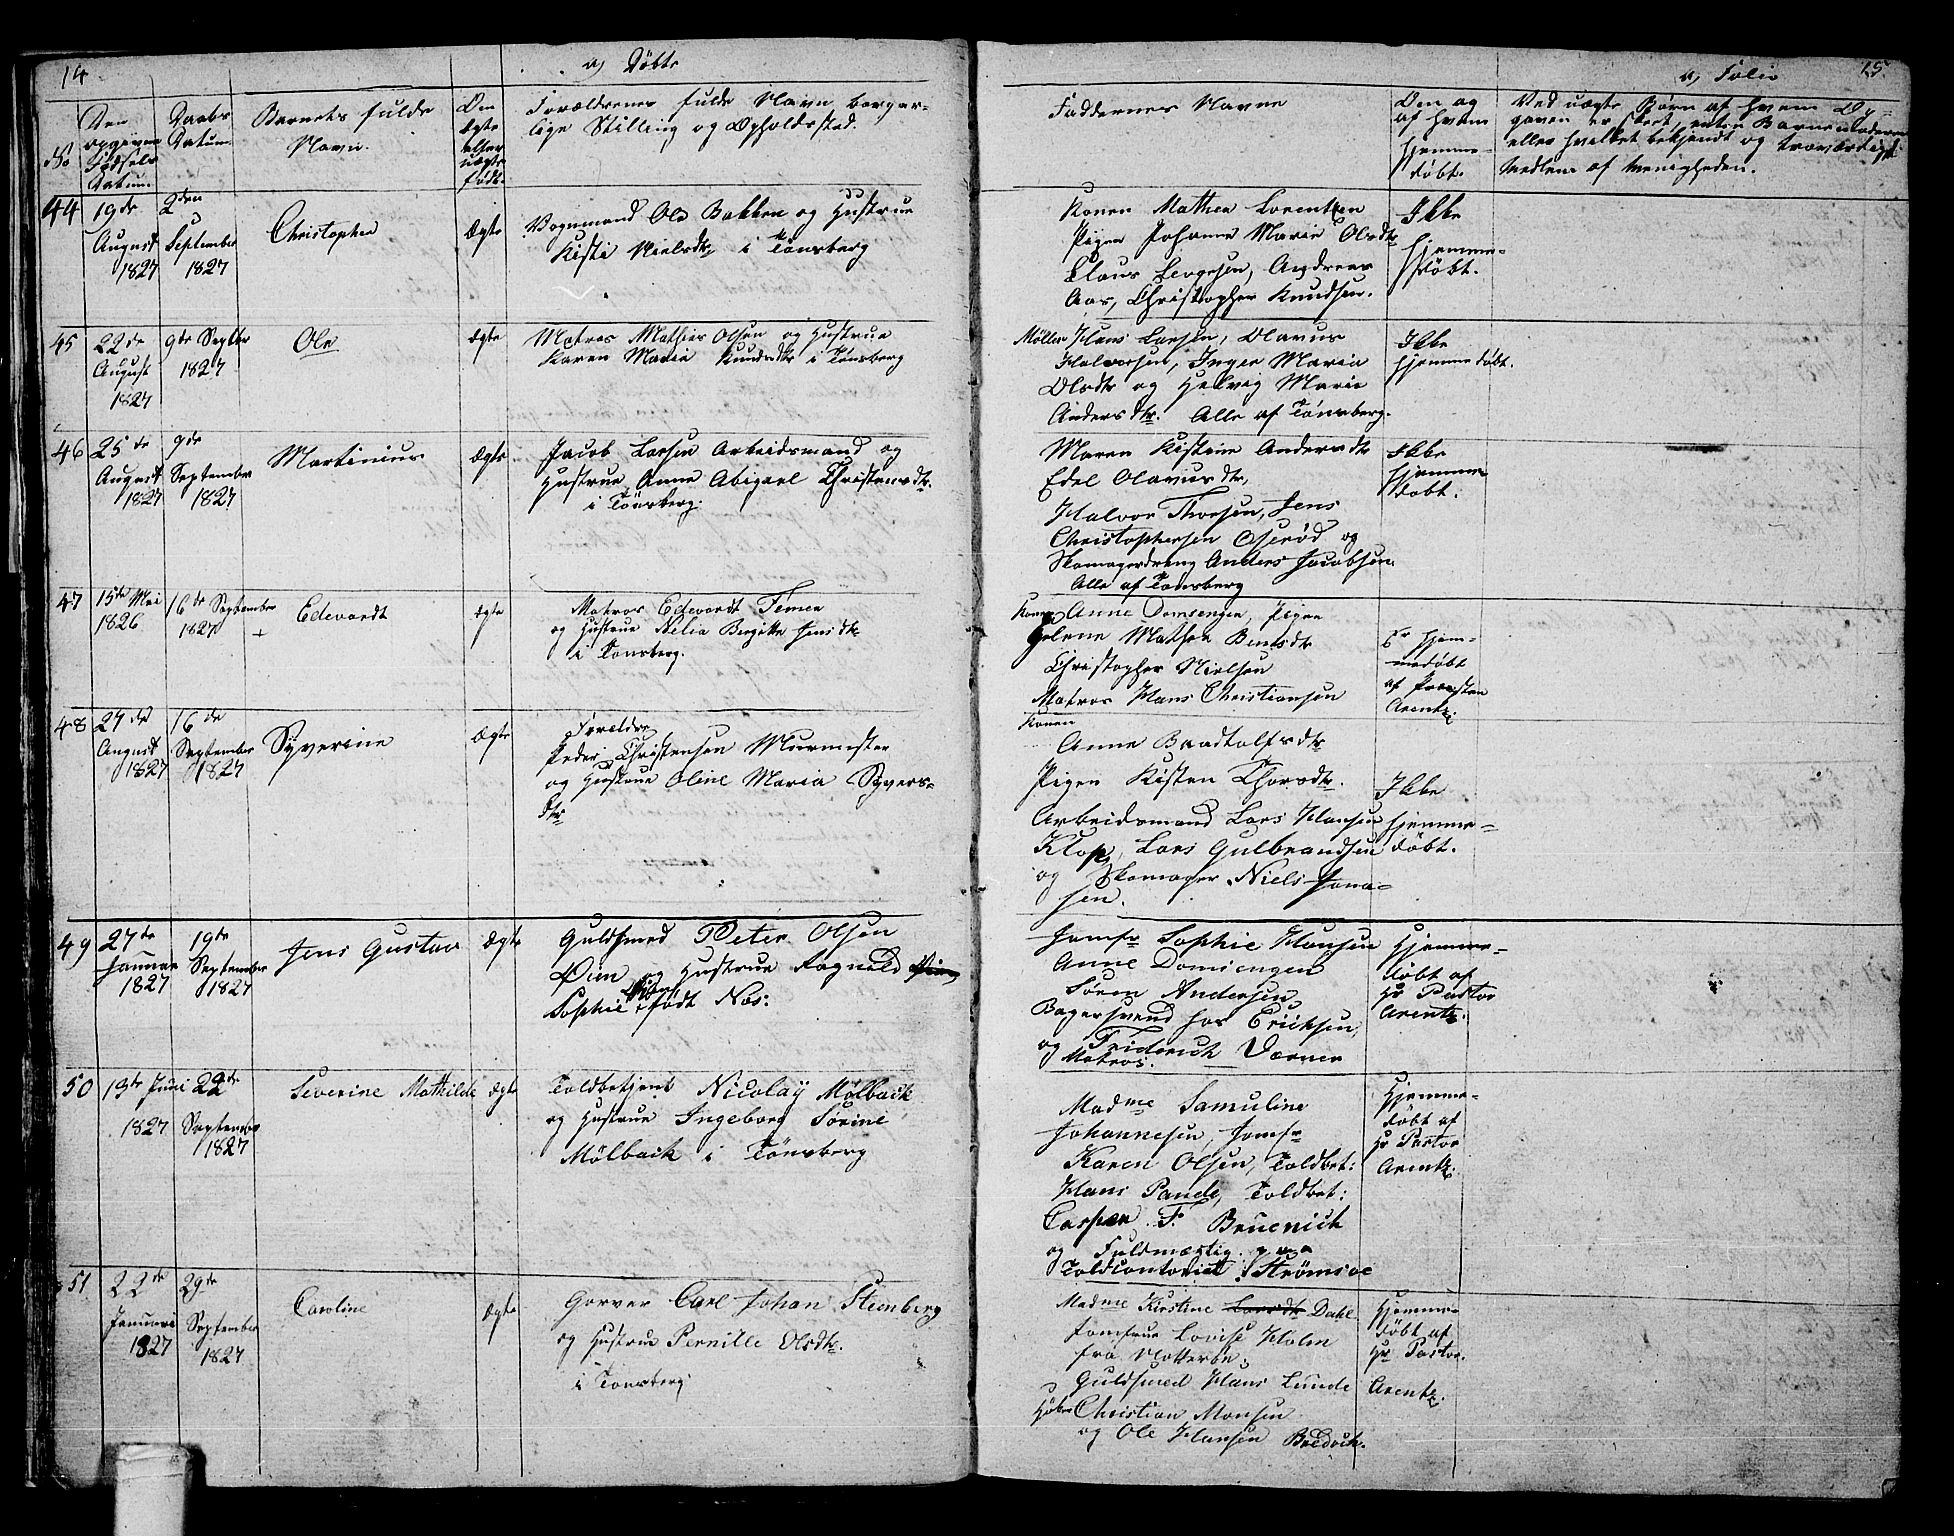 14
a) Døbte
No
Den opgivne Fødsels Datum.
Daabs Datum.
Barnets fulde Navn.
Om ægte eller uægte født.
Forældrenes fulde Navn borger-
lige Stilling og Opholdssted.
44
19de August 1827
2den September 1827
Christopher
Ægte
Vognmand Ole Bakken og Hustrue
Kisti Nielsdtr i Tønsberg
45
22de August 1827
9de Septbr 1827
Ole
ægte
Matros Mathies Olsen og Hustrue
Karen Maria Knudsdtr i Tønsberg
46
25de August 1827
9de September 1827
Martinius
Ægte
Jacob Larsen Arbeidsmand og
Hustrue Anne Abigael Christensdtr.
i Tønsberg.
47
15de Mai 1826
16de September 1827
Edevardt
ægte
Matros Edevardt
og Hustrue Nilia Birgitte Jensdtr
i Tønsberg.
48
27de August 1827
16de September 1827
Syverine
Ægte
Forældre
Peder Christensen Murmester
og Hustrue Oline Maria Syvers-
dtr
49
27de Januar 1827
19de September 1827
Jens Gustav
Ægte
Guldsmed Peter Olsen
Øien og Hustrue Ragnild
Sophie født Næs:
50
19de Juni 1827
22de September 1827
Severine Mathilde
Ægte
Toldbetjent Nicolaÿ Mølback
og Hustrue Ingeborg Sørine
Mølback i Tønsberg
51
22de Januari 1827
29de September 1827
Caroline
ægte
Garver Carl Johan Steenberg
og Hustrue Pernille Olsdtr.
i Tønsberg
a) Folio
15
Faddernes Navne
Om og af hvem hjemme-døbt.
Ved uægte Børn af hvem Op-
gaven er skeet, enten Barnemoderen
eller hvilket bekjendt og troværdigt
Medlem af Menigheden.
Konen Mathea Lorentzen
Pigen Johanne Marie Olsdtr
Claus Levgesen, Andreas
Aas, Christopher Knudsen.
Ikke
hjemme-
døbt.
Møller Hans Larsen, Olavus
Halvorsen, Inger Maria
Olsdtr og Helvig Marie
Andersdtr. Alle af Tønsberg.
Ikke
hjemmedøbt.
Maren Kistine Andersdtr
Edel Olavusdtr,
Halvor Thorsen, Jens
Christophersen Oserød og
Skomagerdreng Anders Jacobsen.
Alle af Tønsberg
Ikke
hjemme-
døbt.
Konen Anne Domsengen, Pigen
Helene Mathea Bentsdtr
Christopher Nielsen
Matros Hans Christiansen
Er hjem-
medøbt
af Præsten
Arentz.
Konen
Anne Bradtolfsdtr
Pigen Kisten Thorsdtr.
Arbeidsmand Lars Hansen
Klop, Lars Gulbrandsen
og Skomager Niels Jona-
sen.
Ikke
hjemme-
døbt.
Jomfr Sophie Hansen
Anne Domsengen
Søren Andersen
Bagersvend hos Ericksen,
og Friderich Værner
Matros.
Hjemme-
døbt af
Hr Pastor
Arentz.
Madme Samuline
Johannesen, Jomfr
Karen Olsen, Toldbet:
Hans Pande, Toldbet:
Casper F. Bruenich
og Fuldmægtig
Toldcontoriet Strømsøe
Hjemme-
døbt af
Hr Pastor
Arentz.
Madme Kirstine Larsdtr Dahl
Jomfrue Lovise Holm
fra Notterøe,
Guldsmed Hans Lunde
Christian Monsen
og Ole Hansen
Hjemme-
døbt af
Hr Pastor.
Arentz.